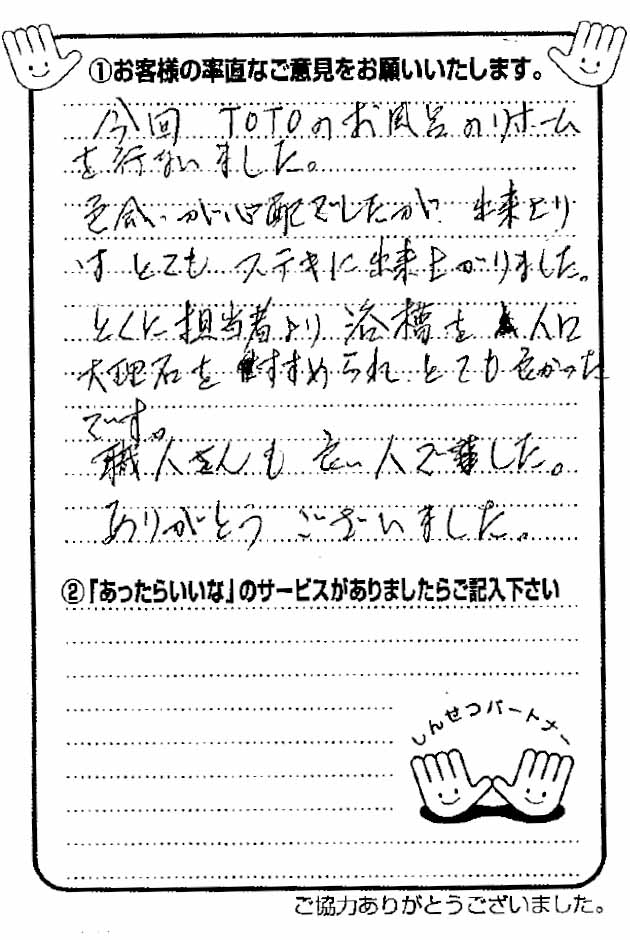 ①お客様の率直なご意見をお願いいたします。
今回 TOTOのお風呂のリホーム
を行ないました。
色合いが心配でしたが、出来上り
はとても ステキに出来上がりました。
とくに担当者より 浴槽を 人口
大理石を すすめられ とても良かった
です。
職人さんも 良い人でした。
ありがとう ございました。
②『あったらいいな』のサービスがありましたらご記入下さい
しんせつパートナー
ご協力ありがとうございました。